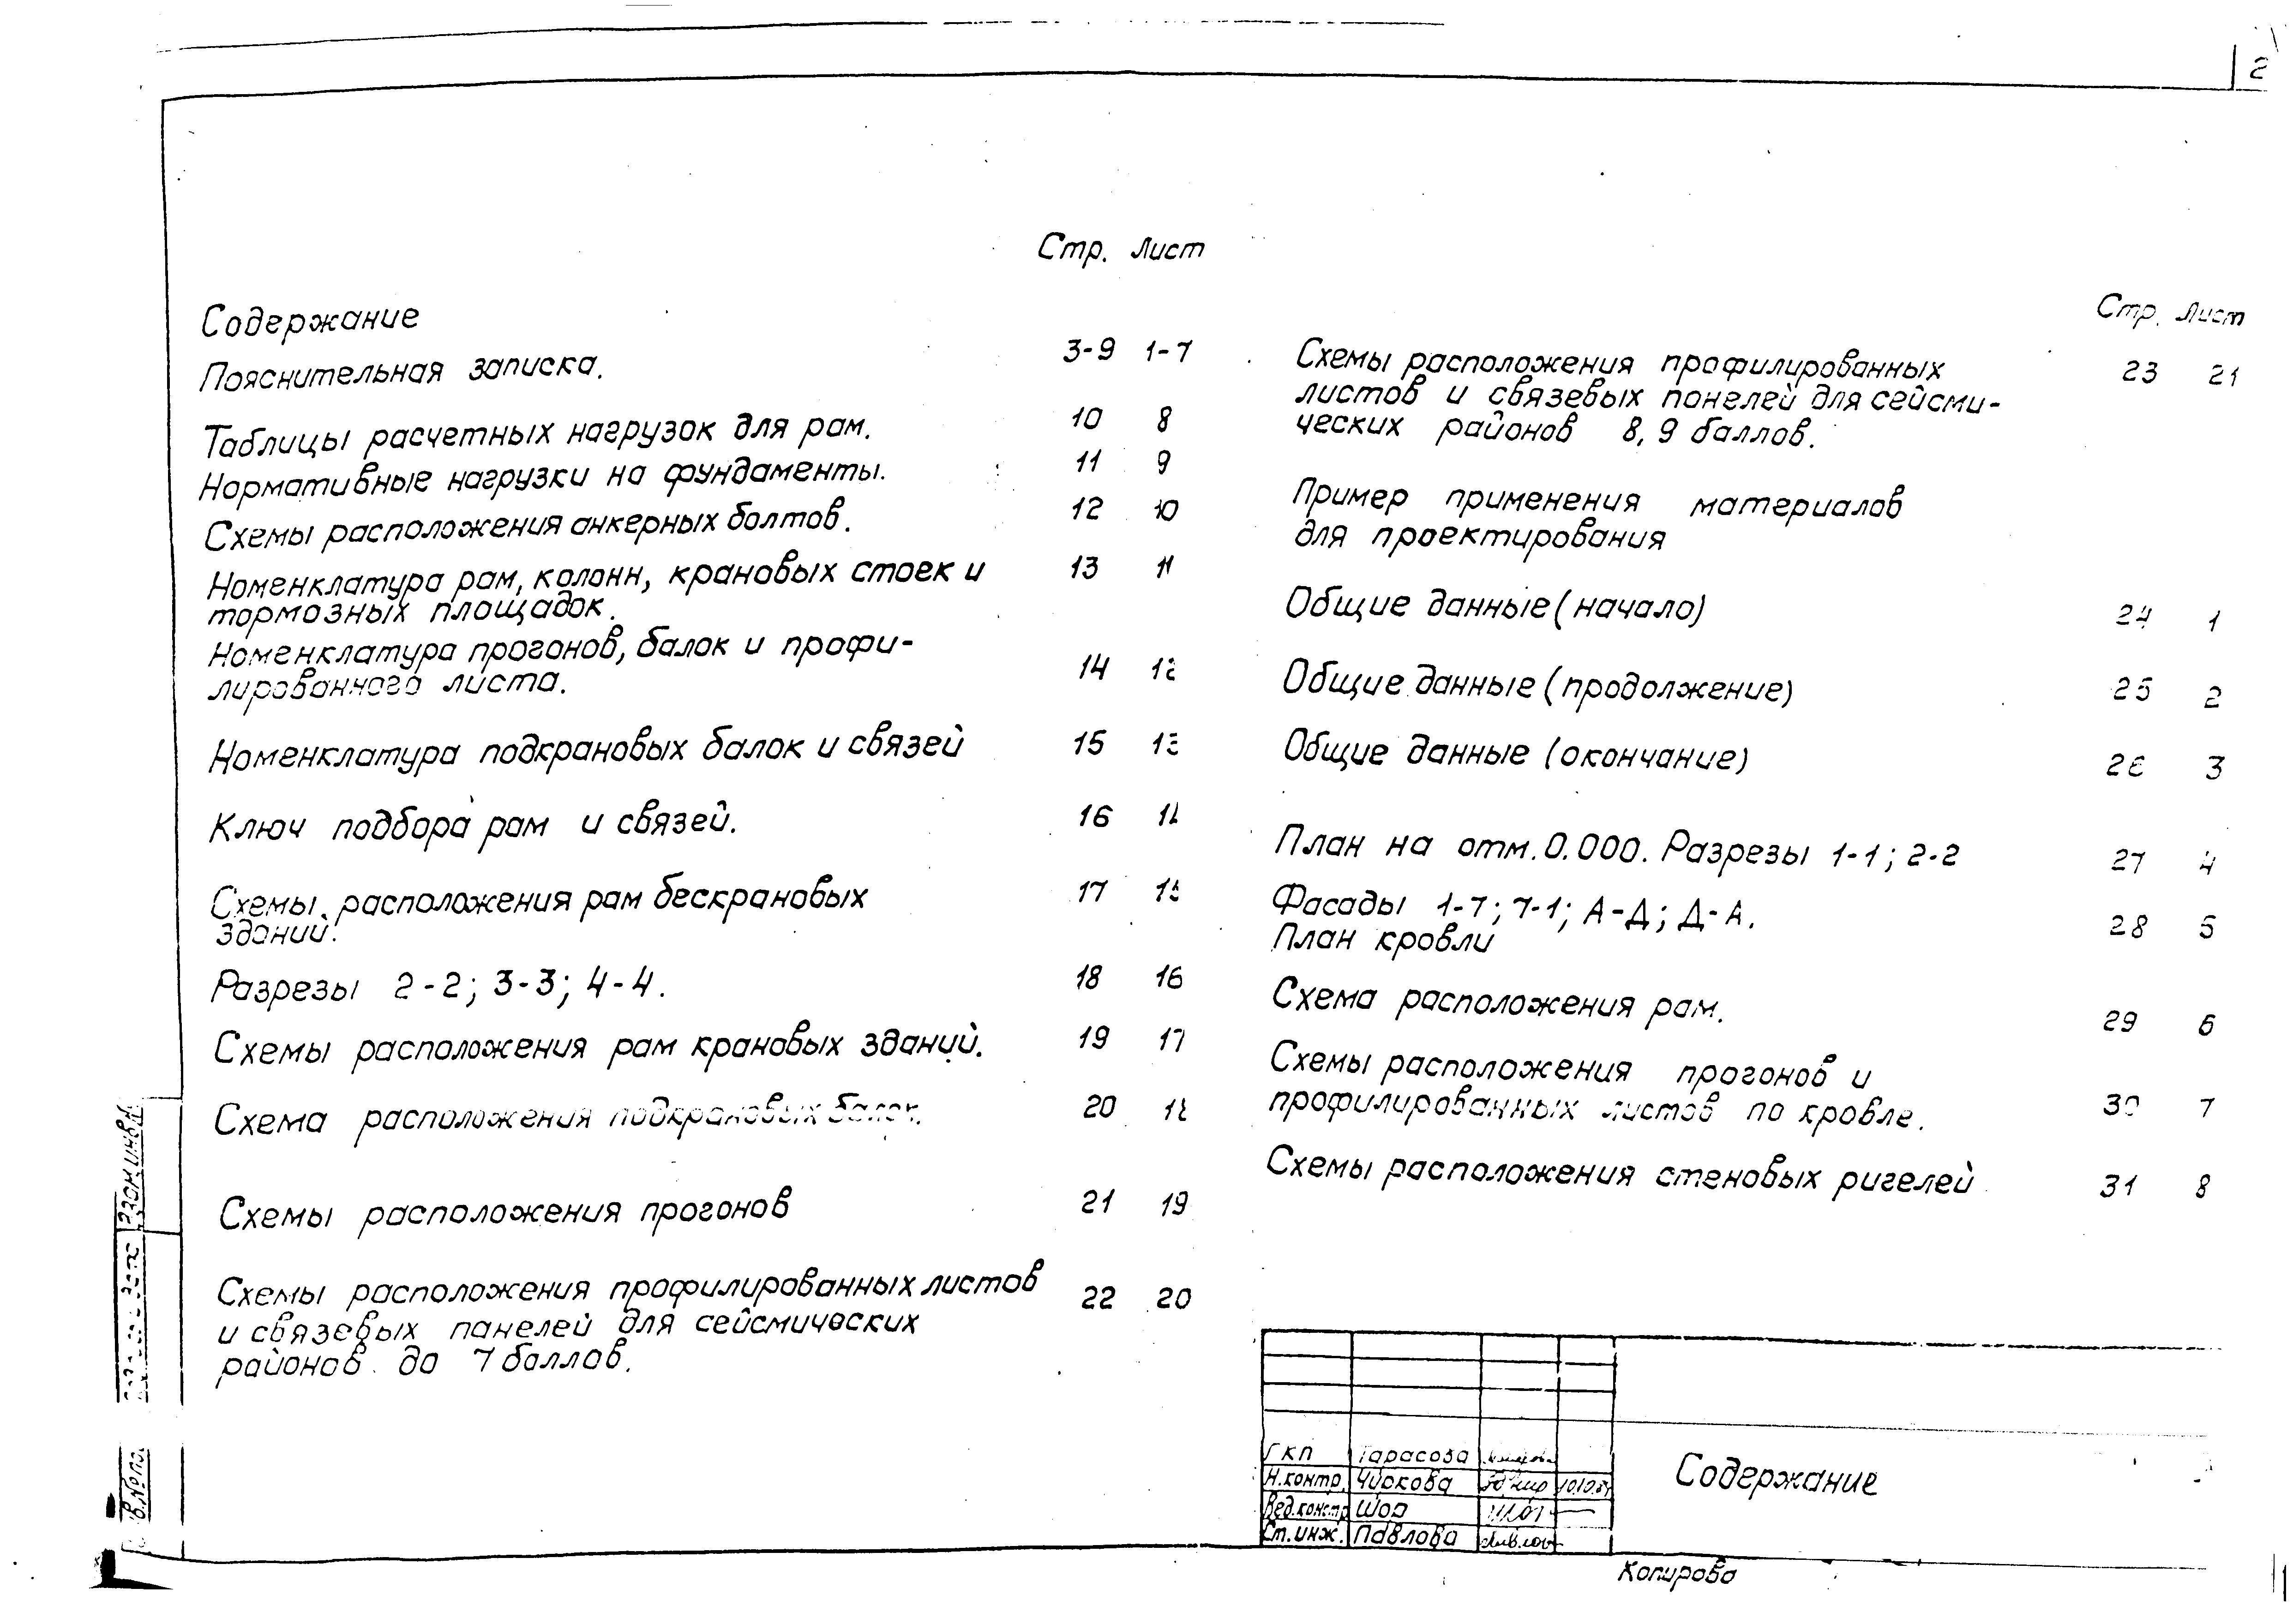 2
Стр. Лист
Содержание
Пояснительная записка. 3-9 1-7
Таблицы расчетных нагрузок для рам. 10 8
Нормативные нагрузки на фундаменты. 11 9
Схемы расположения анкерных болтов. 12 10
Номенклатура рам, колонн, крановых стоек и 13 11
тормозных площадок.
Номенклатура прогонов, балок и профи-
лированного листа. 14 12
Номенклатура подкрановых балок и связей 15 13
Ключ подбора рам и связей. 16 14
Схемы расположения рам бескрановых 17 15
зданий.
Разрезы 2-2; 3-3; 4-4. 18 16
Схемы расположения рам крановых зданий. 19 17
Схема расположения подкрановых балок. 20 18
Схемы расположения прогонов 21 19
Схемы расположения профилированных листов 22 20
и связевых панелей для сейсмических
районов до 7 баллов.
Стр. Лист
Схемы расположения профилированных 23 21
листов и связевых панелей для сейсми-
ческих районов 8, 9 баллов.
Пример применения материалов
для проектирования
Общие данные (начало) 24 1
Общие данные (продолжение) 25 2
Общие данные (окончание) 26 3
План на отм. 0.000. Разрезы 1-1; 2-2 27 4
Фасады 1-7; 7-1; А-Д; Д-А. 28 5
План кровли
Схема расположения рам. 29 6
Схемы расположения прогонов и
профилированных листов по кровле. 30 7
Схемы расположения стеновых ригелей 31 8
ГКП Тарасова
Н.контр. Чиркова
Вед.констр Шор
Ст.инж. Павлова
Содержание
Копирова